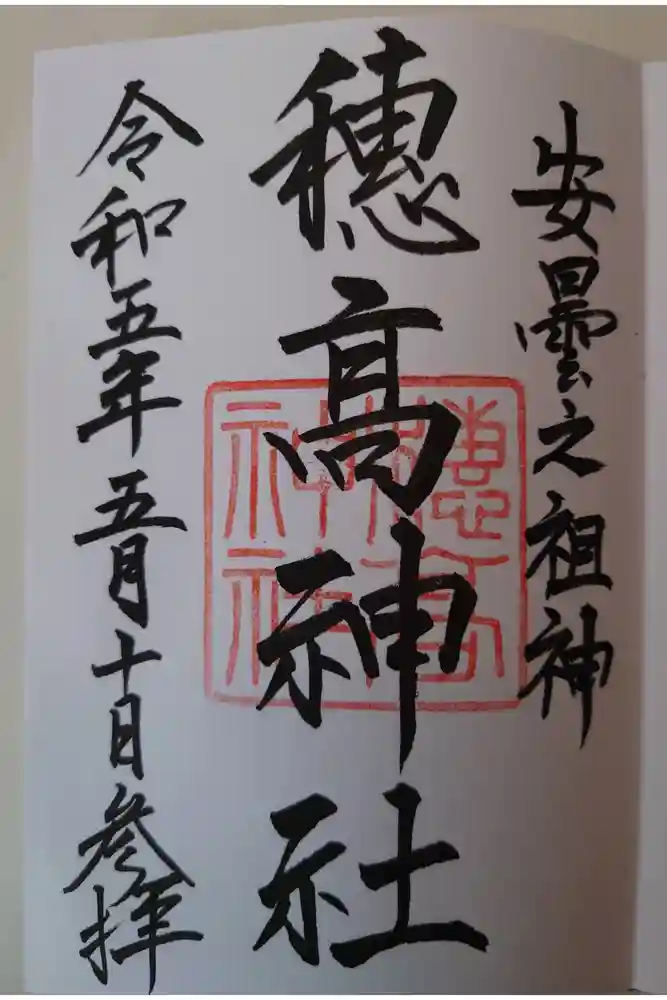 安曇之祖神
穂髙神社
穂髙
神社
令和五年五月十日参拝